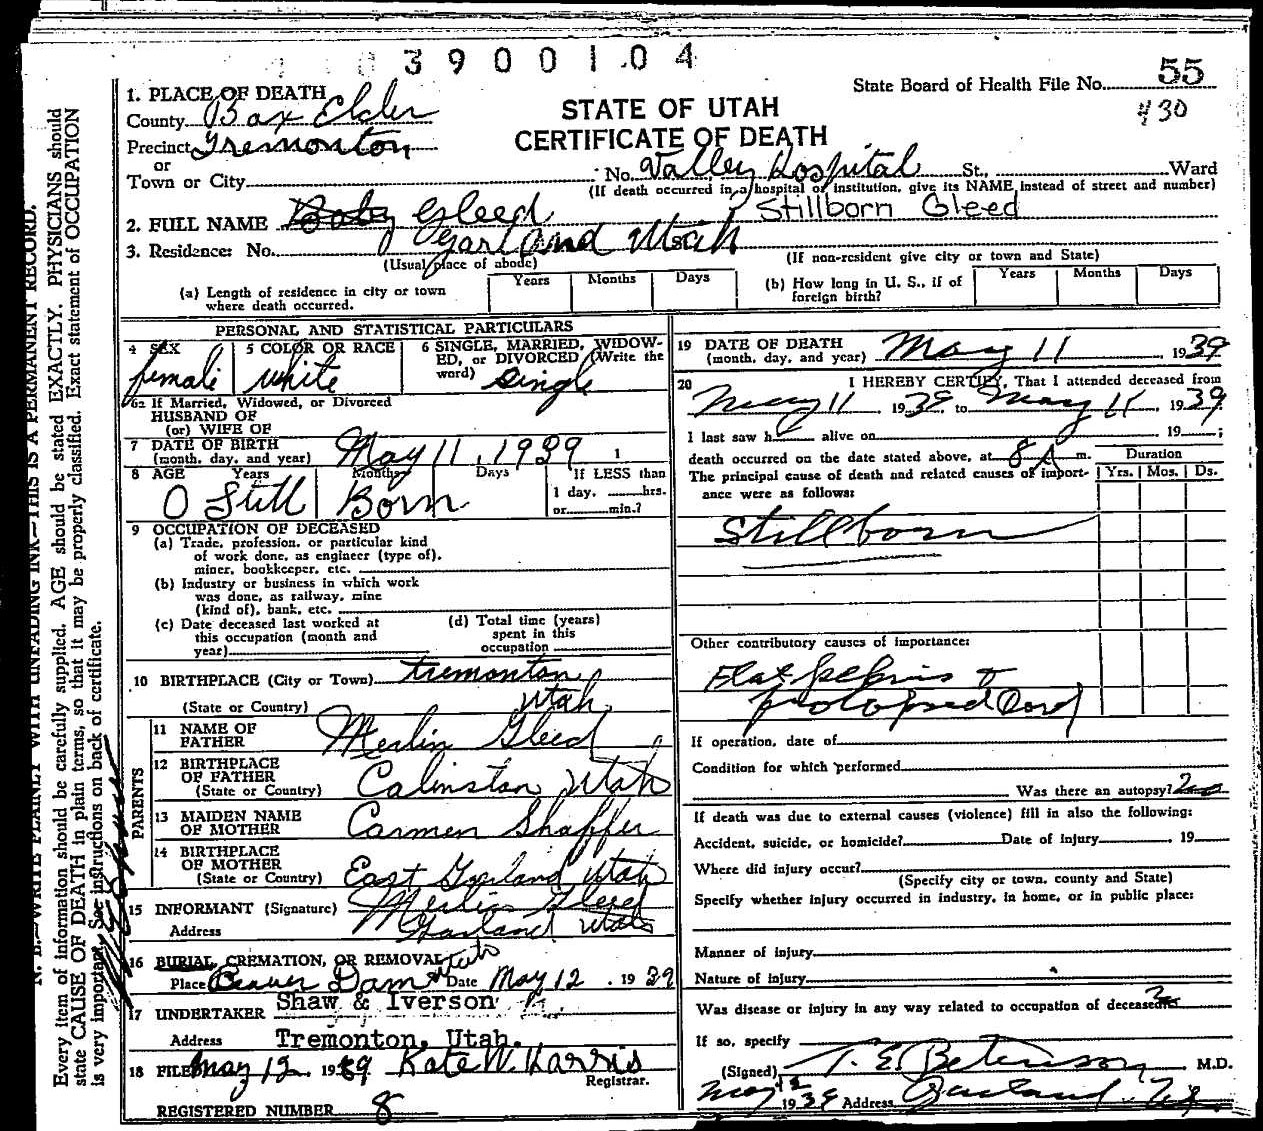 3900104
State Board of Health File No. 55
430
1. PLACE OF DEATH
County Box Elder
Precinct Tremonton
or
Town or City
STATE OF UTAH
CERTIFICATE OF DEATH
No. Valley Hospital St., Ward
(If death occurred in a hospital or institution, give its NAME instead of street and number)
2. FULL NAME Baby Gleed Stillborn Gleed
3. Residence: No. Garland Utah
(Usual place of abode) (If non-resident give city or town and State)
(a) Length of residence in city or town where death occurred. Years Months Days
(b) How long in U. S., if of foreign birth? Years Months Days
PERSONAL AND STATISTICAL PARTICULARS
4 SEX female
5 COLOR OR RACE white
6 SINGLE, MARRIED, WIDOWED, or DIVORCED (Write the word) single
6a If Married, Widowed, or Divorced
HUSBAND OF
(or) WIFE OF
7 DATE OF BIRTH
(month, day, and year) May 11, 1939
8 AGE Years Months Days If LESS than
1 day, hrs.
or min.?
0 Still Born
9 OCCUPATION OF DECEASED
(a) Trade, profession, or particular kind
of work done, as engineer (type of),
miner, bookkeeper, etc.
(b) Industry or business in which work
was done, as railway, mine
(kind of), bank, etc.
(c) Date deceased last worked at
this occupation (month and
year)
(d) Total time (years)
spent in this
occupation
10 BIRTHPLACE (City or Town) Tremonton
(State or Country) Utah
PARENTS
11 NAME OF
FATHER Merlin Gleed
12 BIRTHPLACE
OF FATHER
(State or Country) Calinston Utah
13 MAIDEN NAME
OF MOTHER Carmen Shaffer
14 BIRTHPLACE
OF MOTHER
(State or Country) East Garland Utah
15 INFORMANT (Signature) Merlin Gleed
Address Garland Utah
16 BURIAL, CREMATION, OR REMOVAL
Place Beaver Dam Utah Date May 12, 1939
17 UNDERTAKER Shaw & Iverson
Address Tremonton, Utah.
18 FILED May 12 1939 Kate W. Harris
Registrar.
REGISTERED NUMBER 8
19 DATE OF DEATH
(month, day, and year) May 11, 1939
20 I HEREBY CERTIFY, That I attended deceased from
May 11, 1939 to May 11, 1939
I last saw h alive on 19 ;
death occurred on the date stated above, at 8 A m.
The principal cause of death and related causes of importance were as follows:
Duration
Yrs. Mos. Ds.
Stillborn
Other contributory causes of importance:
Flat pelvis &
prolapsed Cord
If operation, date of
Condition for which performed
Was there an autopsy? no
If death was due to external causes (violence) fill in also the following:
Accident, suicide, or homicide? Date of injury 19
Where did injury occur?
(Specify city or town, county and State)
Specify whether injury occurred in industry, in home, or in public place:
Manner of injury
Nature of injury
Was disease or injury in any way related to occupation of deceased?
If so, specify
(Signed) T. E. Betenson, M.D.
May 12 1939 Address Garland, Ut.
N. B.—WRITE PLAINLY WITH UNFADING INK—THIS IS A PERMANENT RECORD.
Every item of information should be carefully supplied. AGE should be stated EXACTLY. PHYSICIANS should
state CAUSE OF DEATH in plain terms, so that it may be properly classified. Exact statement of OCCUPATION
is very important. See instructions on back of certificate.